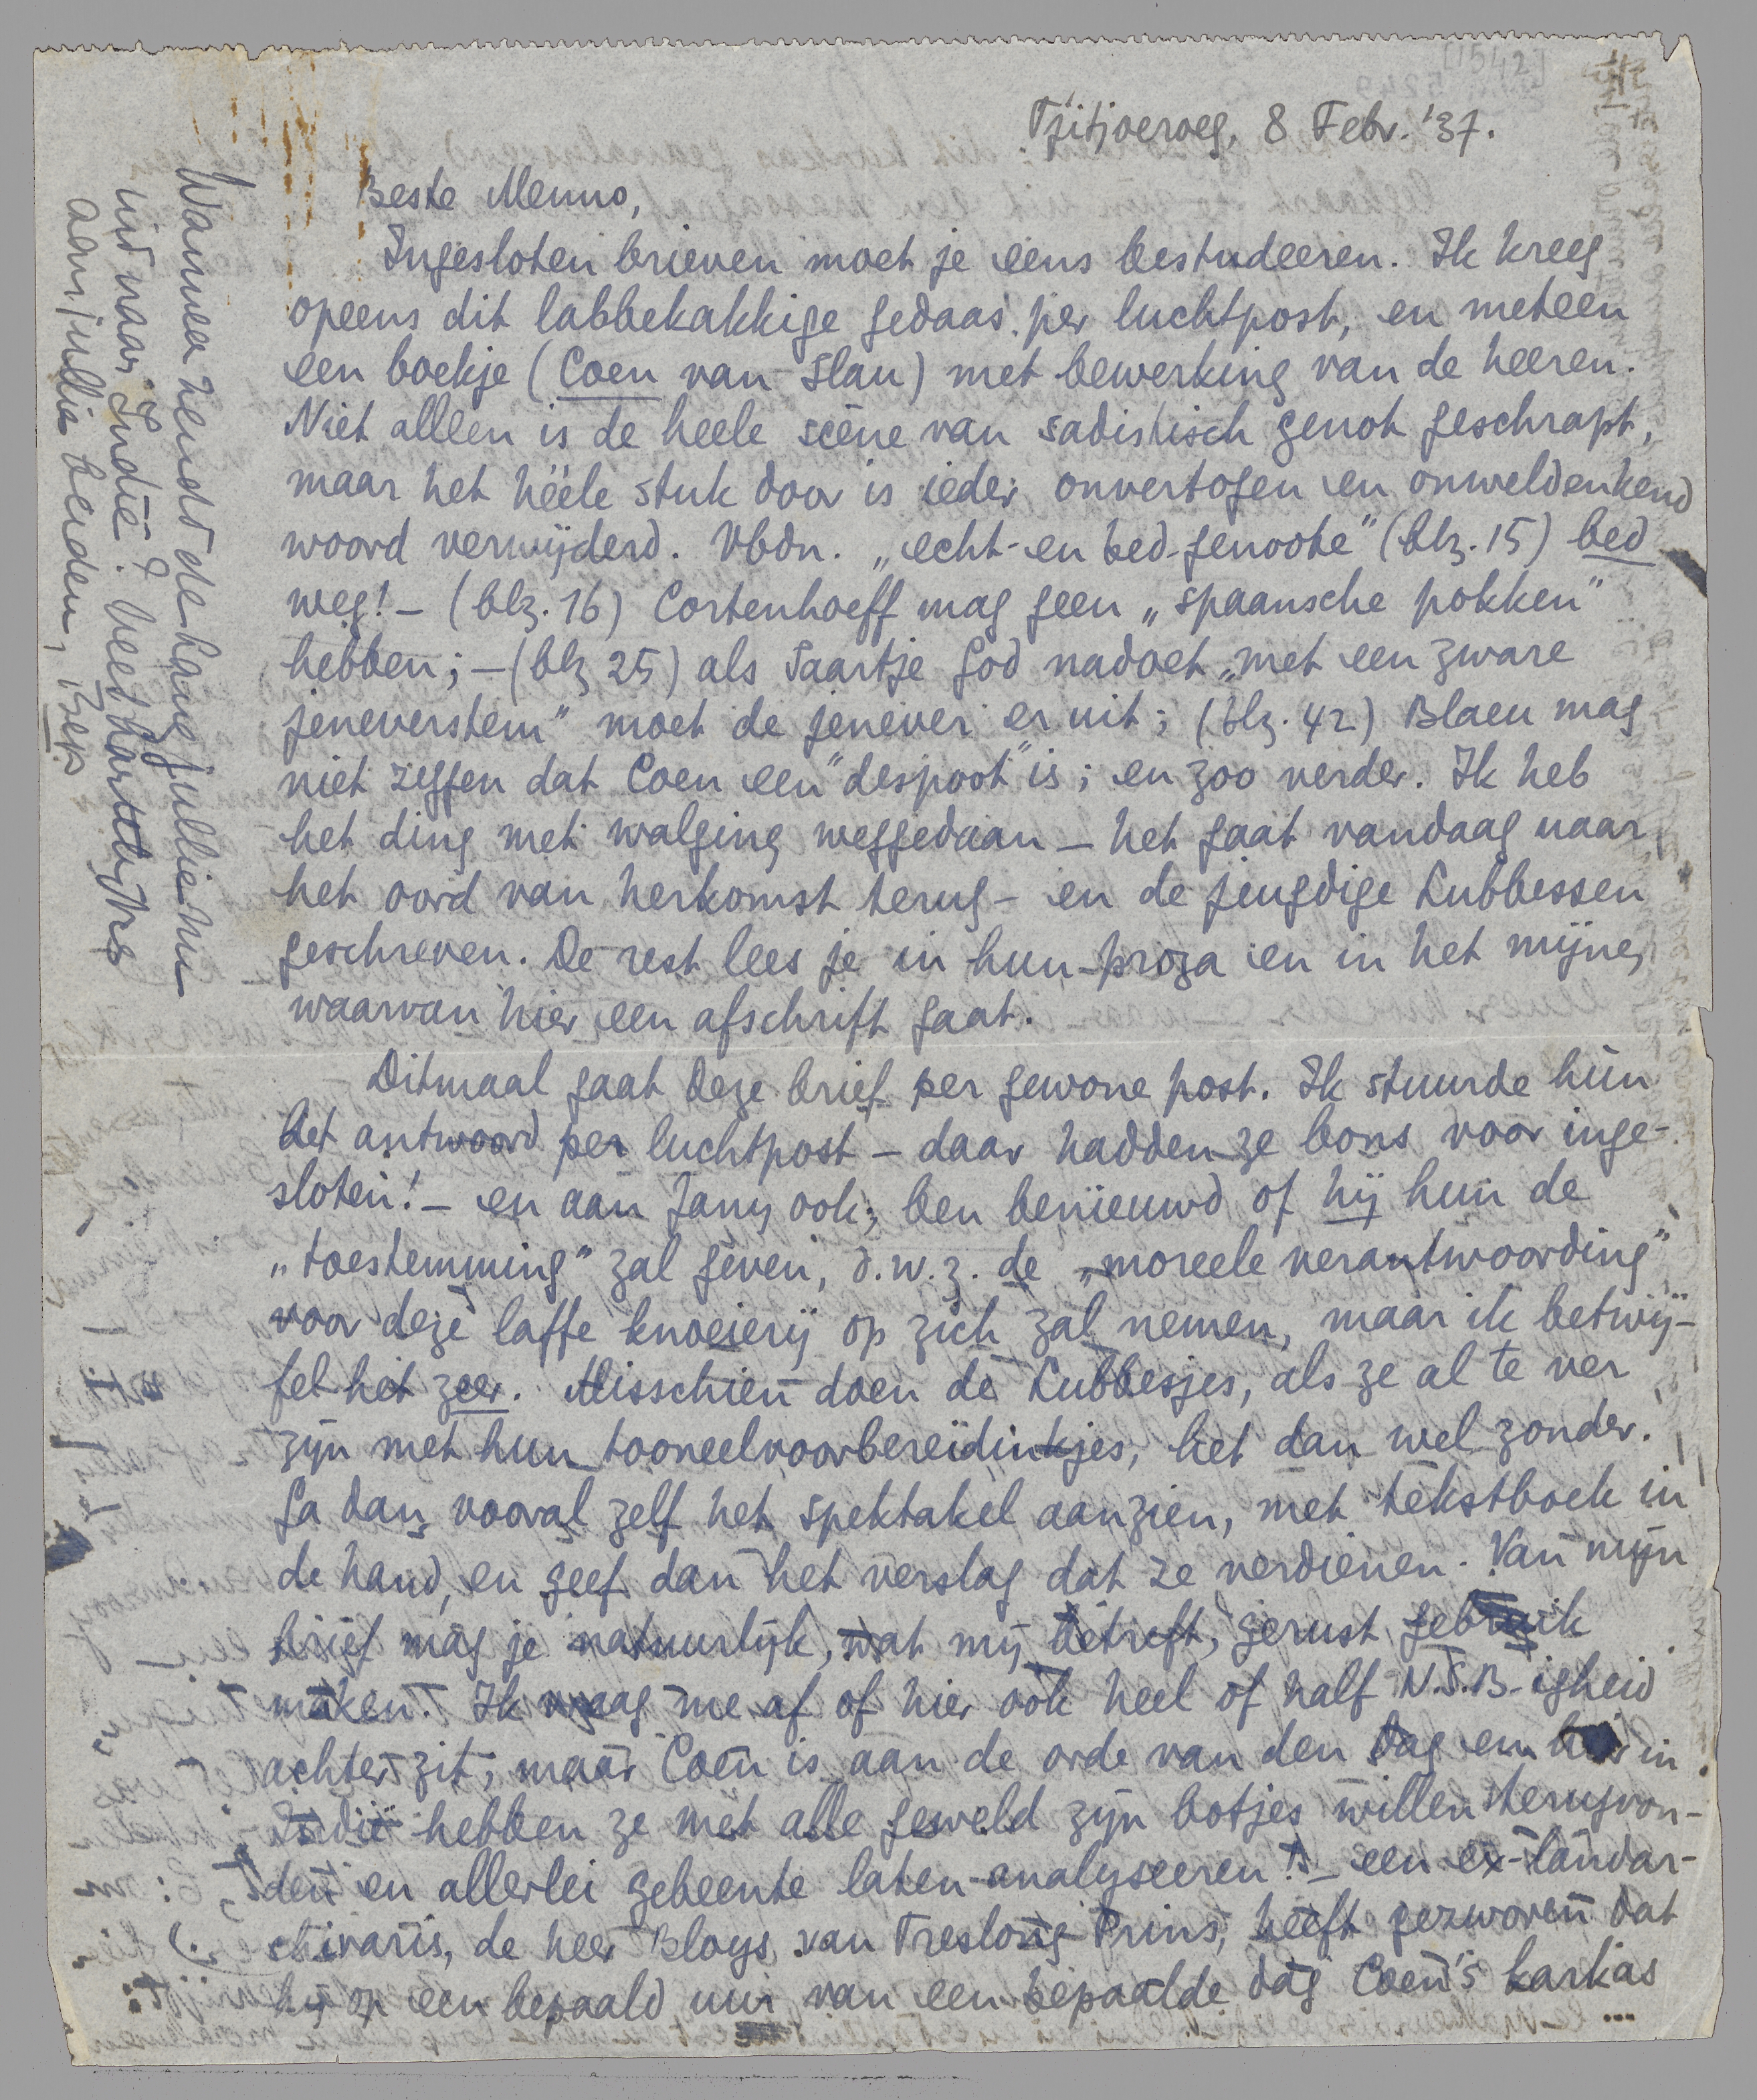 [1542]
Tjitjoeroeg, 8 Febr. '37.
Beste Menno,
Ingesloten brieven moet je eens bestudeeren. Ik kreeg
opeens dit labbekakkige gedaas per luchtpost, en meteen
een boekje (Coen van Slau) met bewerking van de heeren.
Niet alleen is de heele scène van sadistisch genot geschrapt,
maar het héele stuk door is ieder onvertogen en onweldenkend
woord verwijderd. Vbdn. „echt- en bed-genoote" (blz. 15) bed
weg! – (blz. 16) Cortenhoeff mag geen „spaansche pokken"
hebben; – (blz 25) als Saartje God nadoet „met een zware
jeneverstem" moet de jenever er uit; (blz. 42) Blaeu mag
niet zeggen dat Coen een "despoot" is; en zoo verder. Ik heb
het ding met walging weggedaan – het gaat vandaag naar
het oord van herkomst terug – en de jeugdige Lubbessen
geschreven. De rest lees je in hun proza en in het mijne,
waarvan hier een afschrift gaat.
Ditmaal gaat deze brief per gewone post. Ik stuurde hùn
het antwoord per luchtpost – daar hadden ze bons voor inge-
sloten! – en aan Jany ook; ben benieuwd of hij hun de
„toestemming" zal geven, d.w.z. de „moreele verantwoording"
voor deze laffe knoeierij op zich zal nemen, maar ik betwij-
fel het zeer. Misschien doen de Lubbesjes, als ze al te ver
zijn met hun tooneelvoorbereidinkjes, het dan wel zonder.
Ga dan vooral zelf het spektakel aanzien, met tekstboek in
de hand, en geef dan het verslag dat ze verdienen. Van mijn
brief mag je natuurlijk, wat mij betreft, gerust gebruik
maken. Ik vraag me af of hier ook heel of half N.S.B-igheid
achter zit; maar Coen is aan de orde van den dag en hier in
Indië hebben ze met alle geweld zijn botjes willen terugvon-
den en allerlei gebeente laten analyseeren! – een ex-landar-
chivaris, de heer Bloys van Treslong Prins, heeft gezworen dat
hij op een bepaald uur van een bepaalde dag Coen's karkas
...
Wanneer zendt de Haag jullie nu
uit naar Indië? Veel hartelijks
aan jullie beiden, Bep